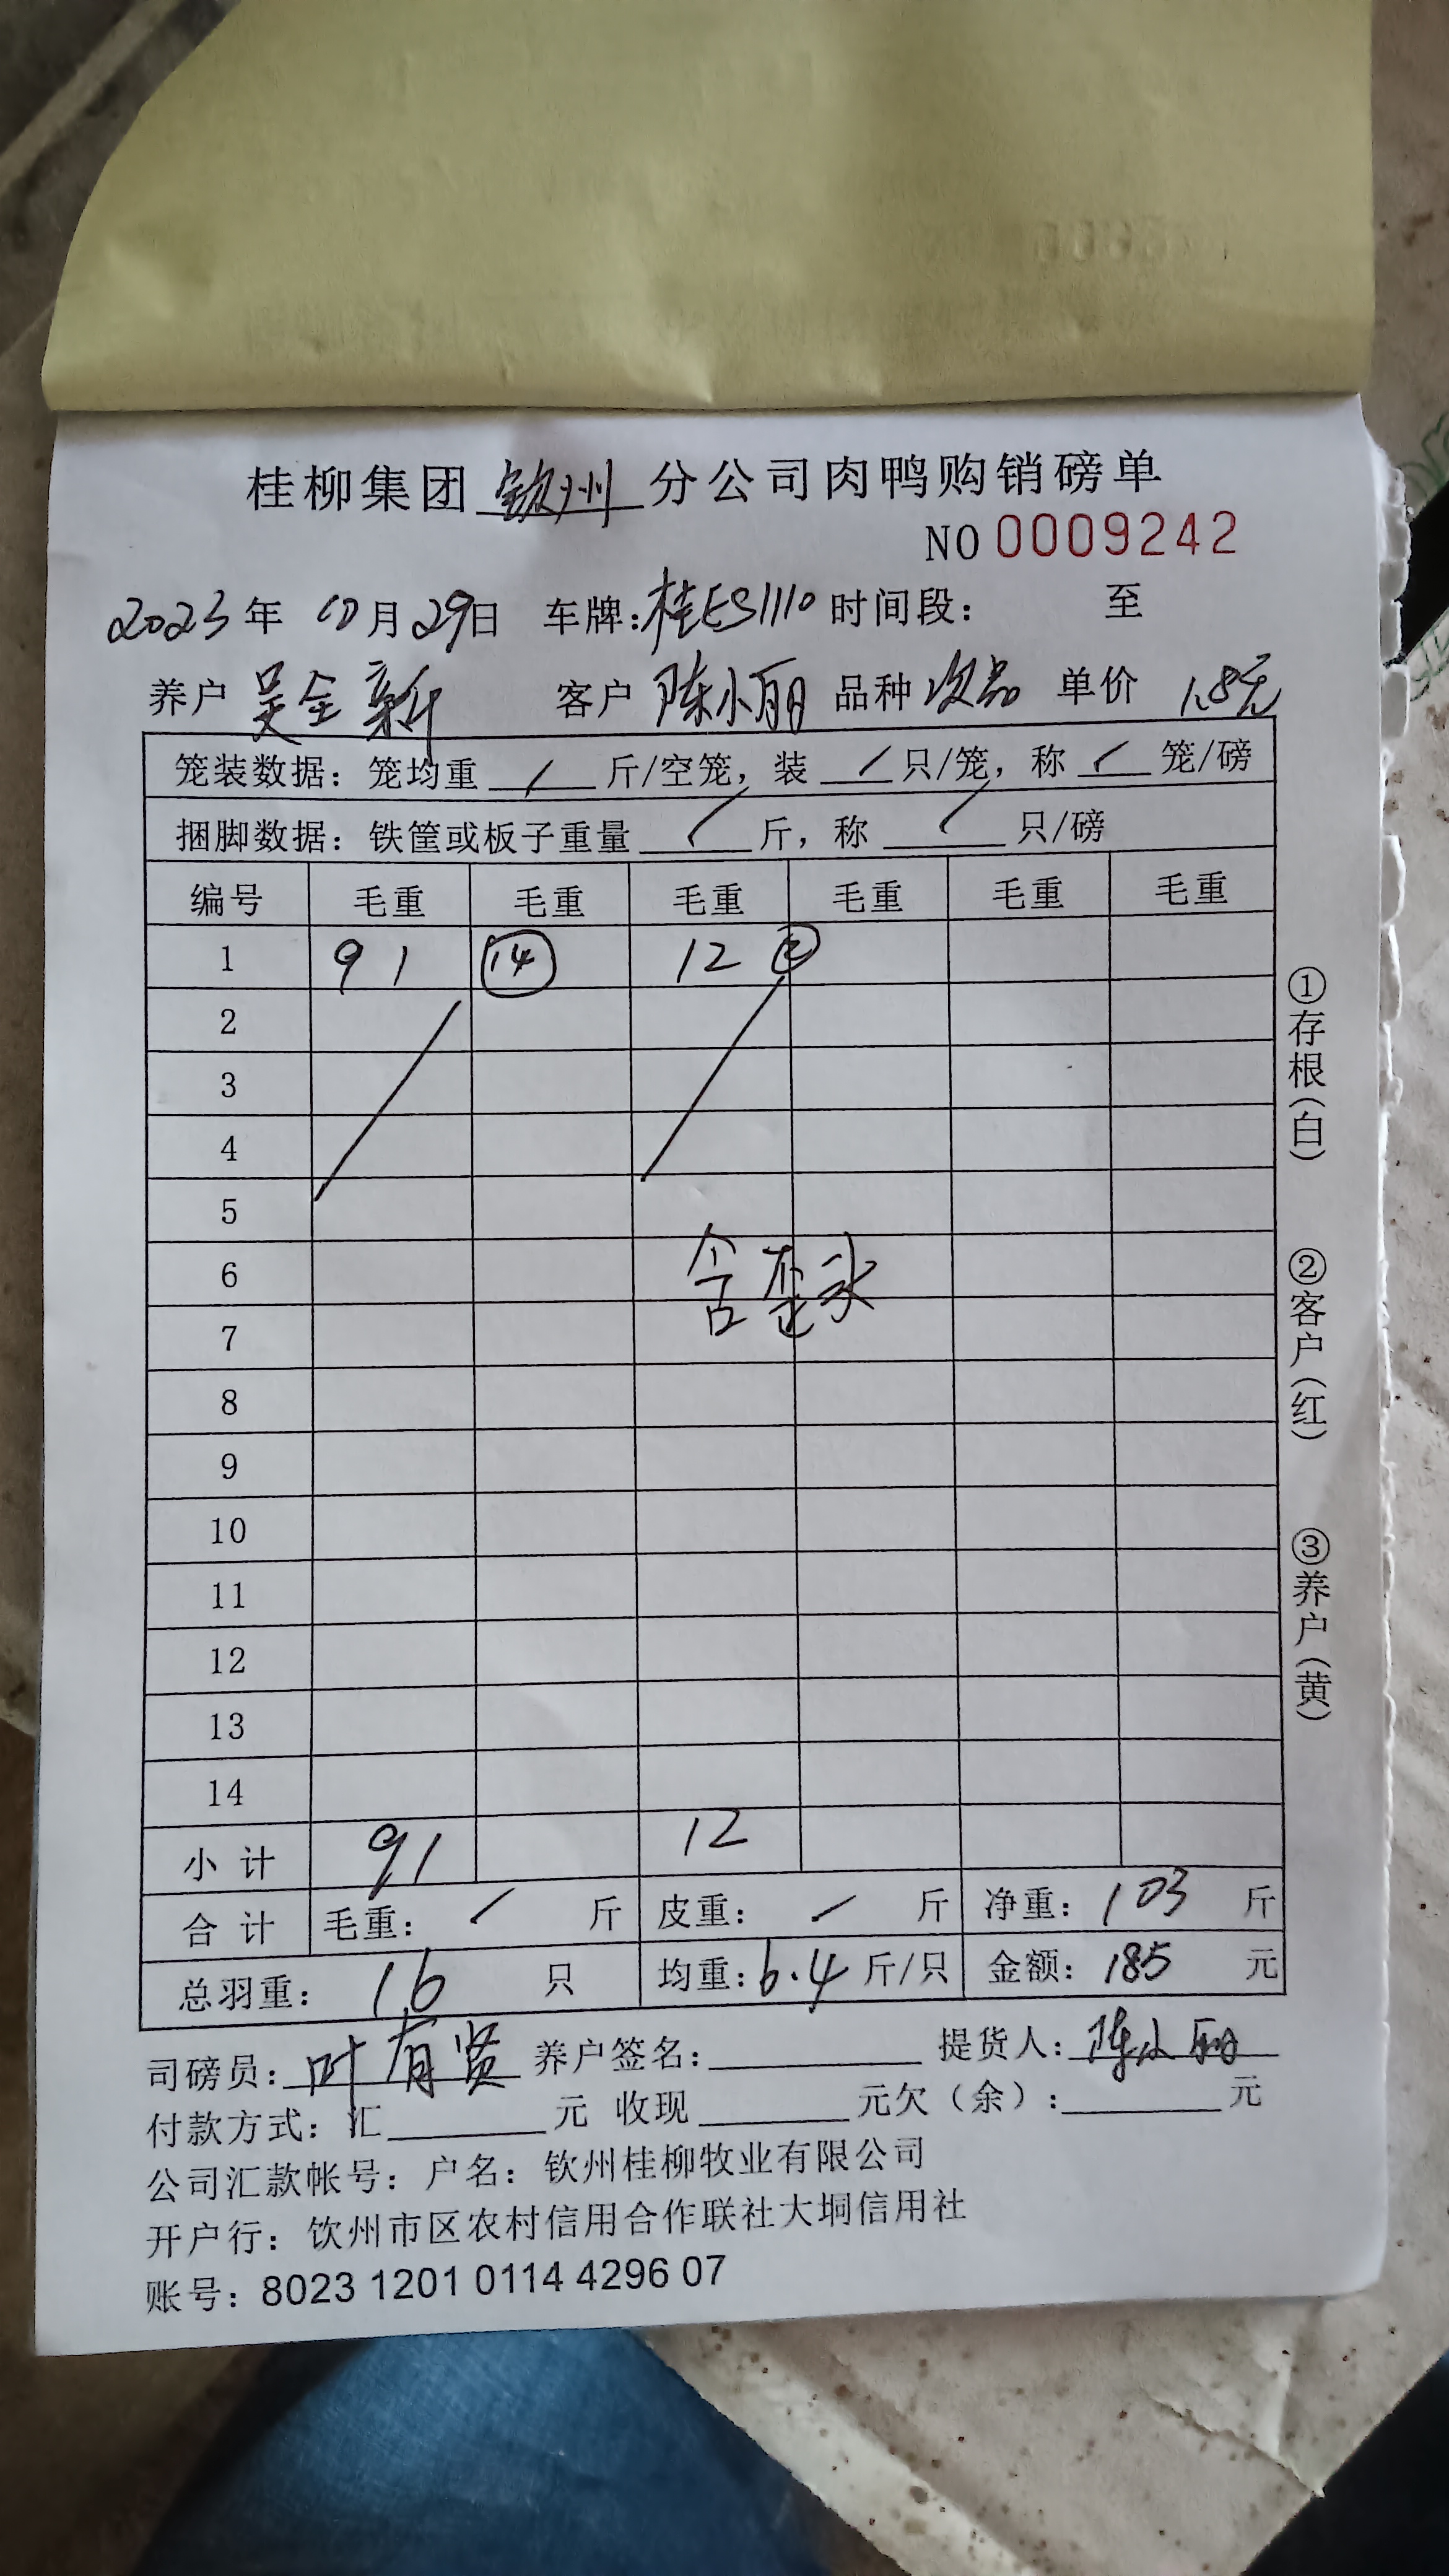 桂柳集团钦州分公司肉鸭购销磅单
NO 0009242
2023年 10月29日 车牌:桂ES1110 时间段: 至
养户 吴全新 客户 陈小丽 品种 次品 单价 1.8元
笼装数据: 笼均重 / 斤/空笼, 装 / 只/笼, 称 / 笼/磅
捆脚数据: 铁筐或板子重量 / 斤, 称 / 只/磅
编号 毛重 毛重 毛重 毛重 毛重 毛重
1 91 14 12 2
2
3
4
5
6 含歪头
7
8
9
10
11
12
13
14
小计 91 12
合计 毛重: / 斤 皮重: / 斤 净重: 103 斤
总羽重: 16 只 均重: 6.4 斤/只 金额: 185 元
司磅员: 叶有贤 养户签名: 提货人: 陈小丽
付款方式: 汇 元 收现 元欠(余): 元
公司汇款帐号: 户名: 钦州桂柳牧业有限公司
开户行: 钦州市区农村信用合作联社大垌信用社
账号: 8023 1201 0114 4296 07
①存根(白)
②客户(红)
③养户(黄)